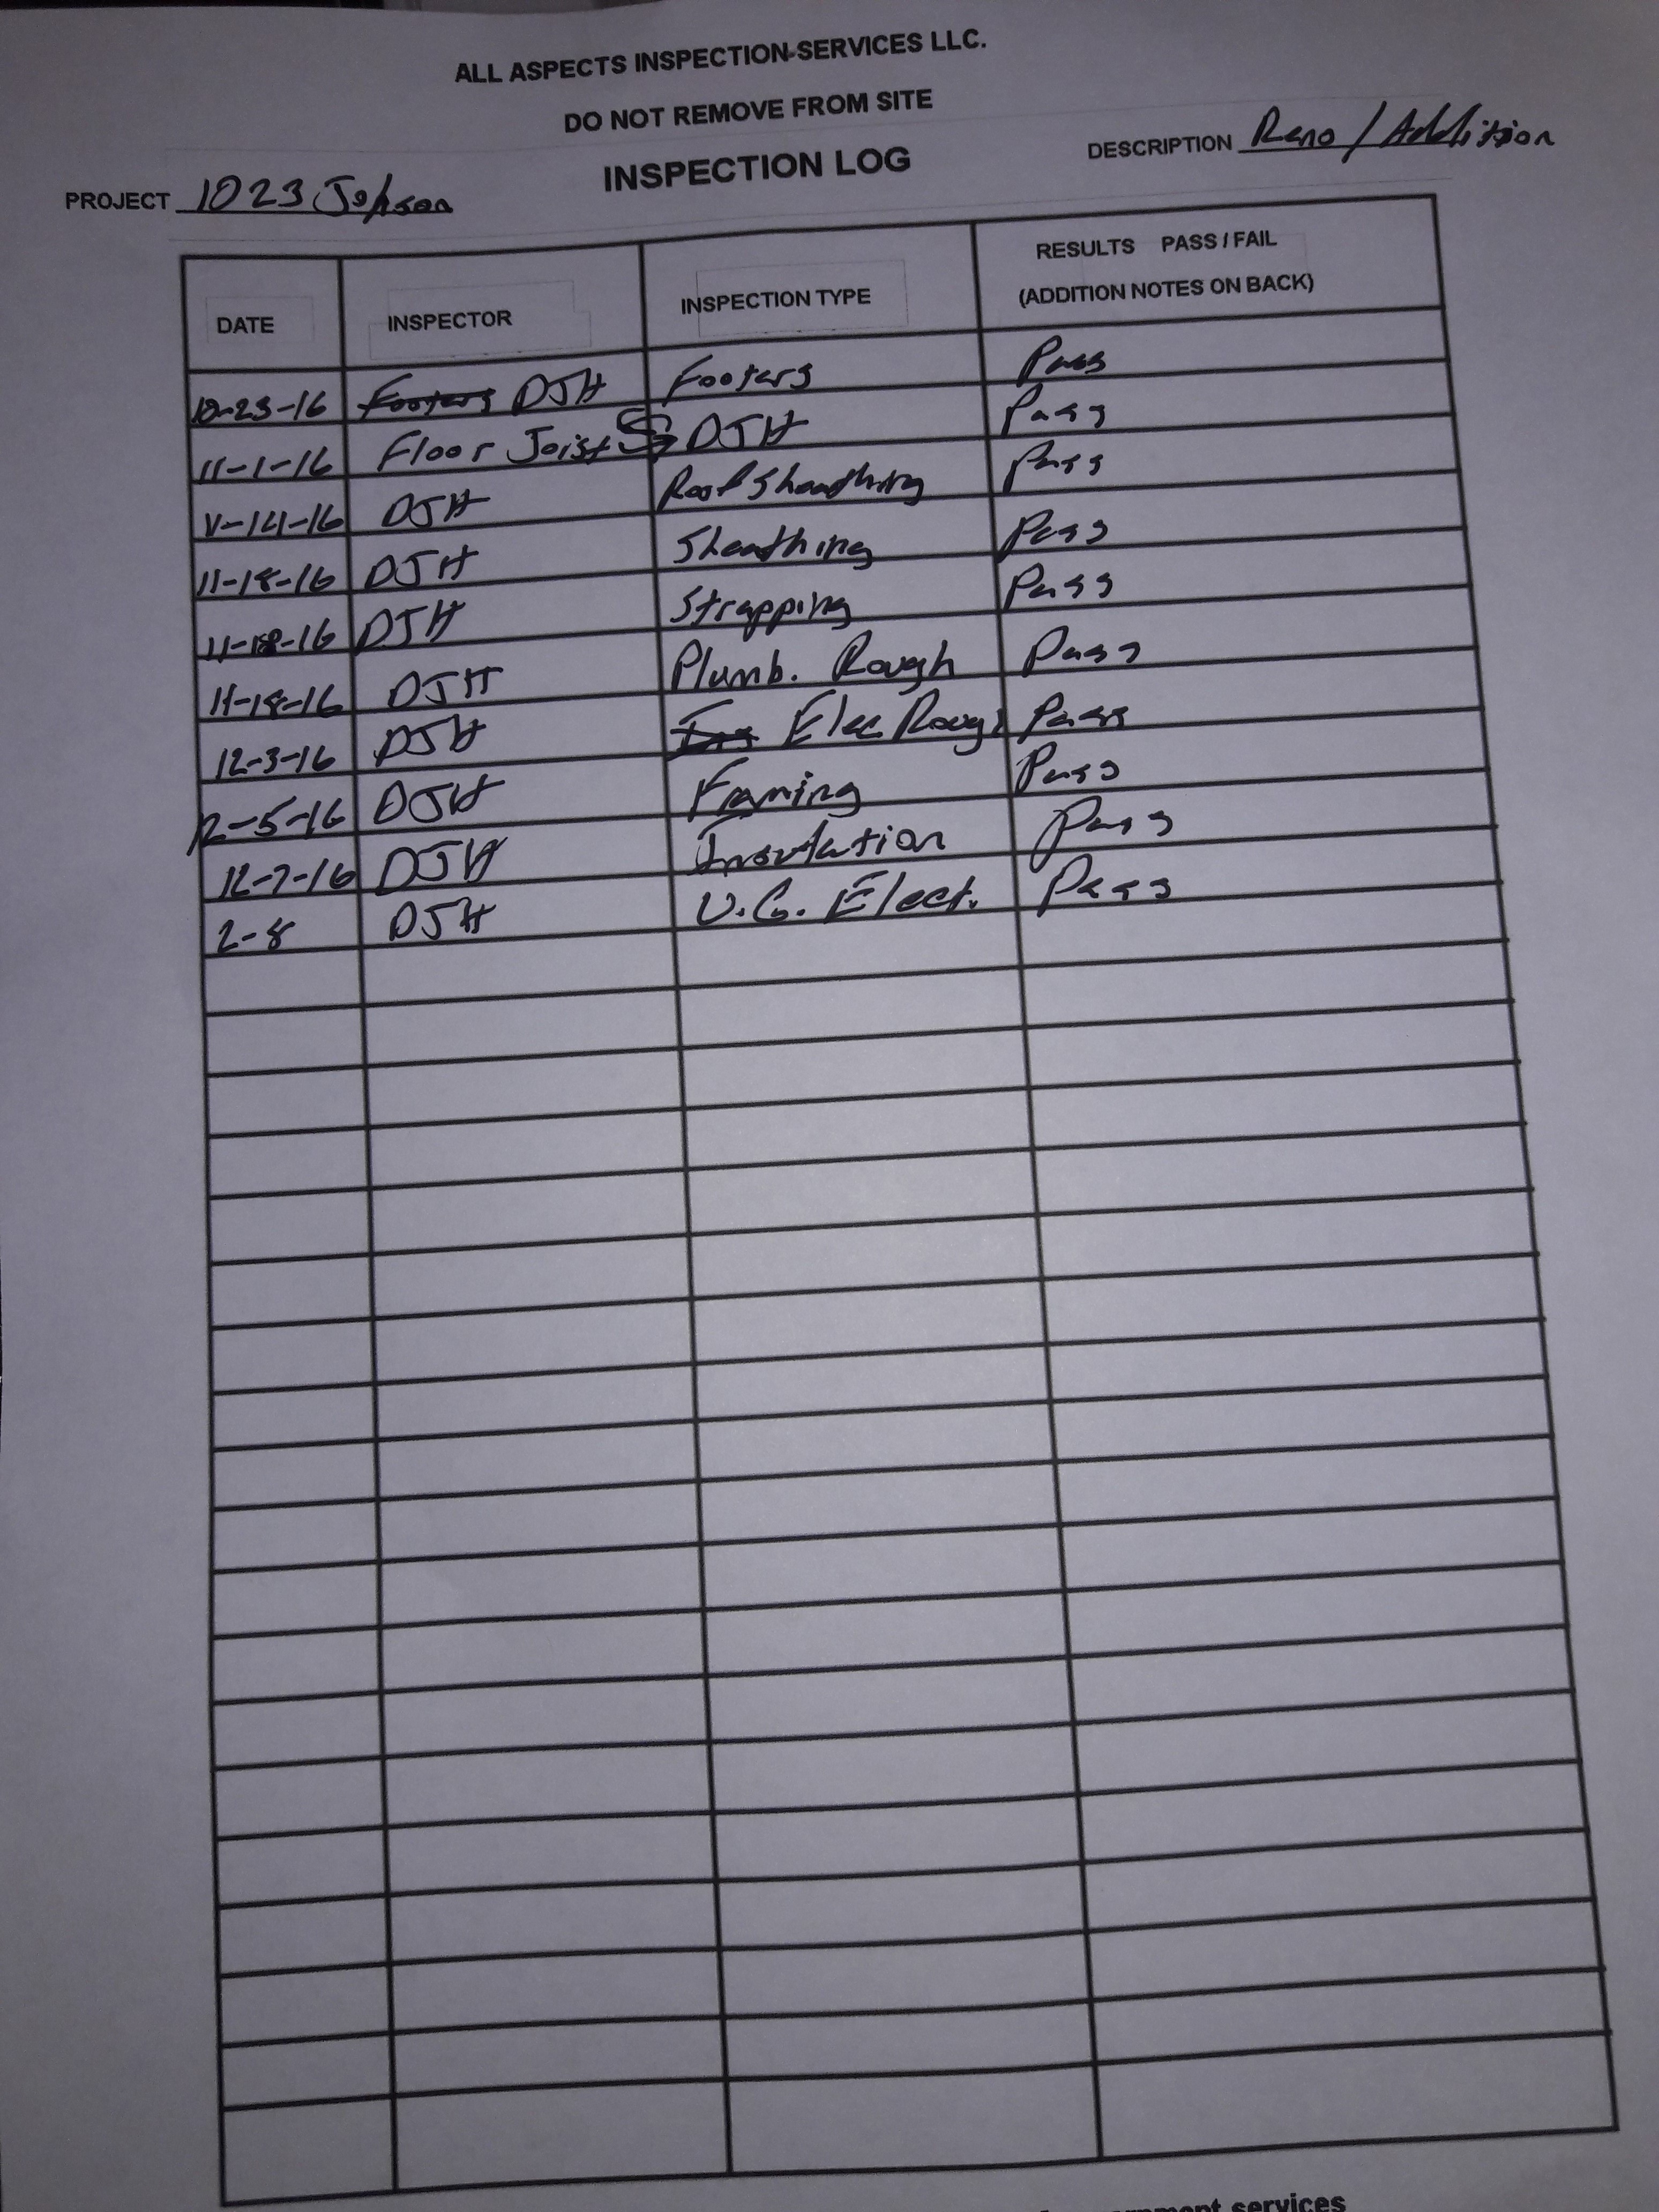 ALL ASPECTS INSPECTION SERVICES LLC.
DO NOT REMOVE FROM SITE
INSPECTION LOG
PROJECT 1023 Johson
DESCRIPTION Reno / Addition
DATE INSPECTOR INSPECTION TYPE RESULTS PASS / FAIL (ADDITION NOTES ON BACK)
10-23-16 Footers DJH Footers Pass
11-1-16 Floor Joists DJH Pass
11-14-16 DJH Roof Sheathing Pass
11-18-16 DJH Sheathing Pass
11-18-16 DJH Strapping Pass
11-18-16 DJH Plumb. Rough Pass
12-3-16 DJH Elec Rough Pass
12-5-16 DJH Framing Pass
12-7-16 DJH Insulation Pass
2-8 DJH U.G. Elect. Pass
services